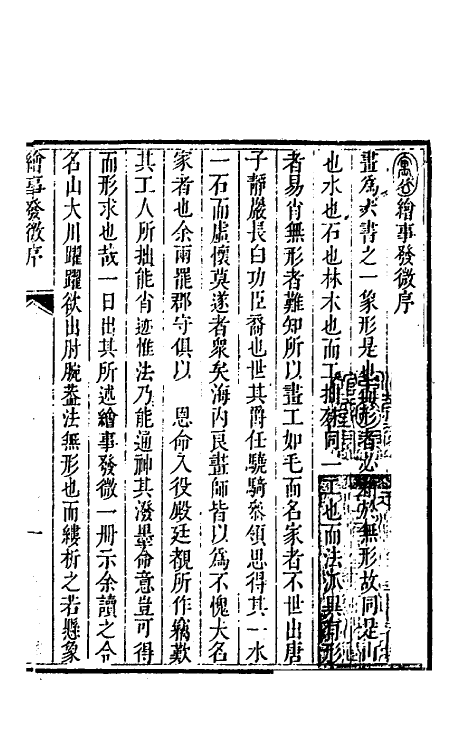 繪事發微序
畫爲六書之一象形是也無形者必於無形故同是山
也水也石也林木也而工拙不同一 也而法亦異有形
者易肖無形者難知所以畫工如毛而名家者不世出唐
子靜嚴長白功臣裔也世其爵任驍騎叅領思得其一水
一石而虛懷莫遂者衆矣海内良畫師皆以爲不愧大名
家者也余兩罷郡守俱以 恩命入役殿廷覩所作竊歎
其工人所拙能肖迹惟法乃能通神其潑墨命意豈可得
而形求也哉一日出其所述繪事發微一册示余讀之令
名山大川躍躍欲出肘腕葢法無形也而縷析之若懸象
繪事發微序
一